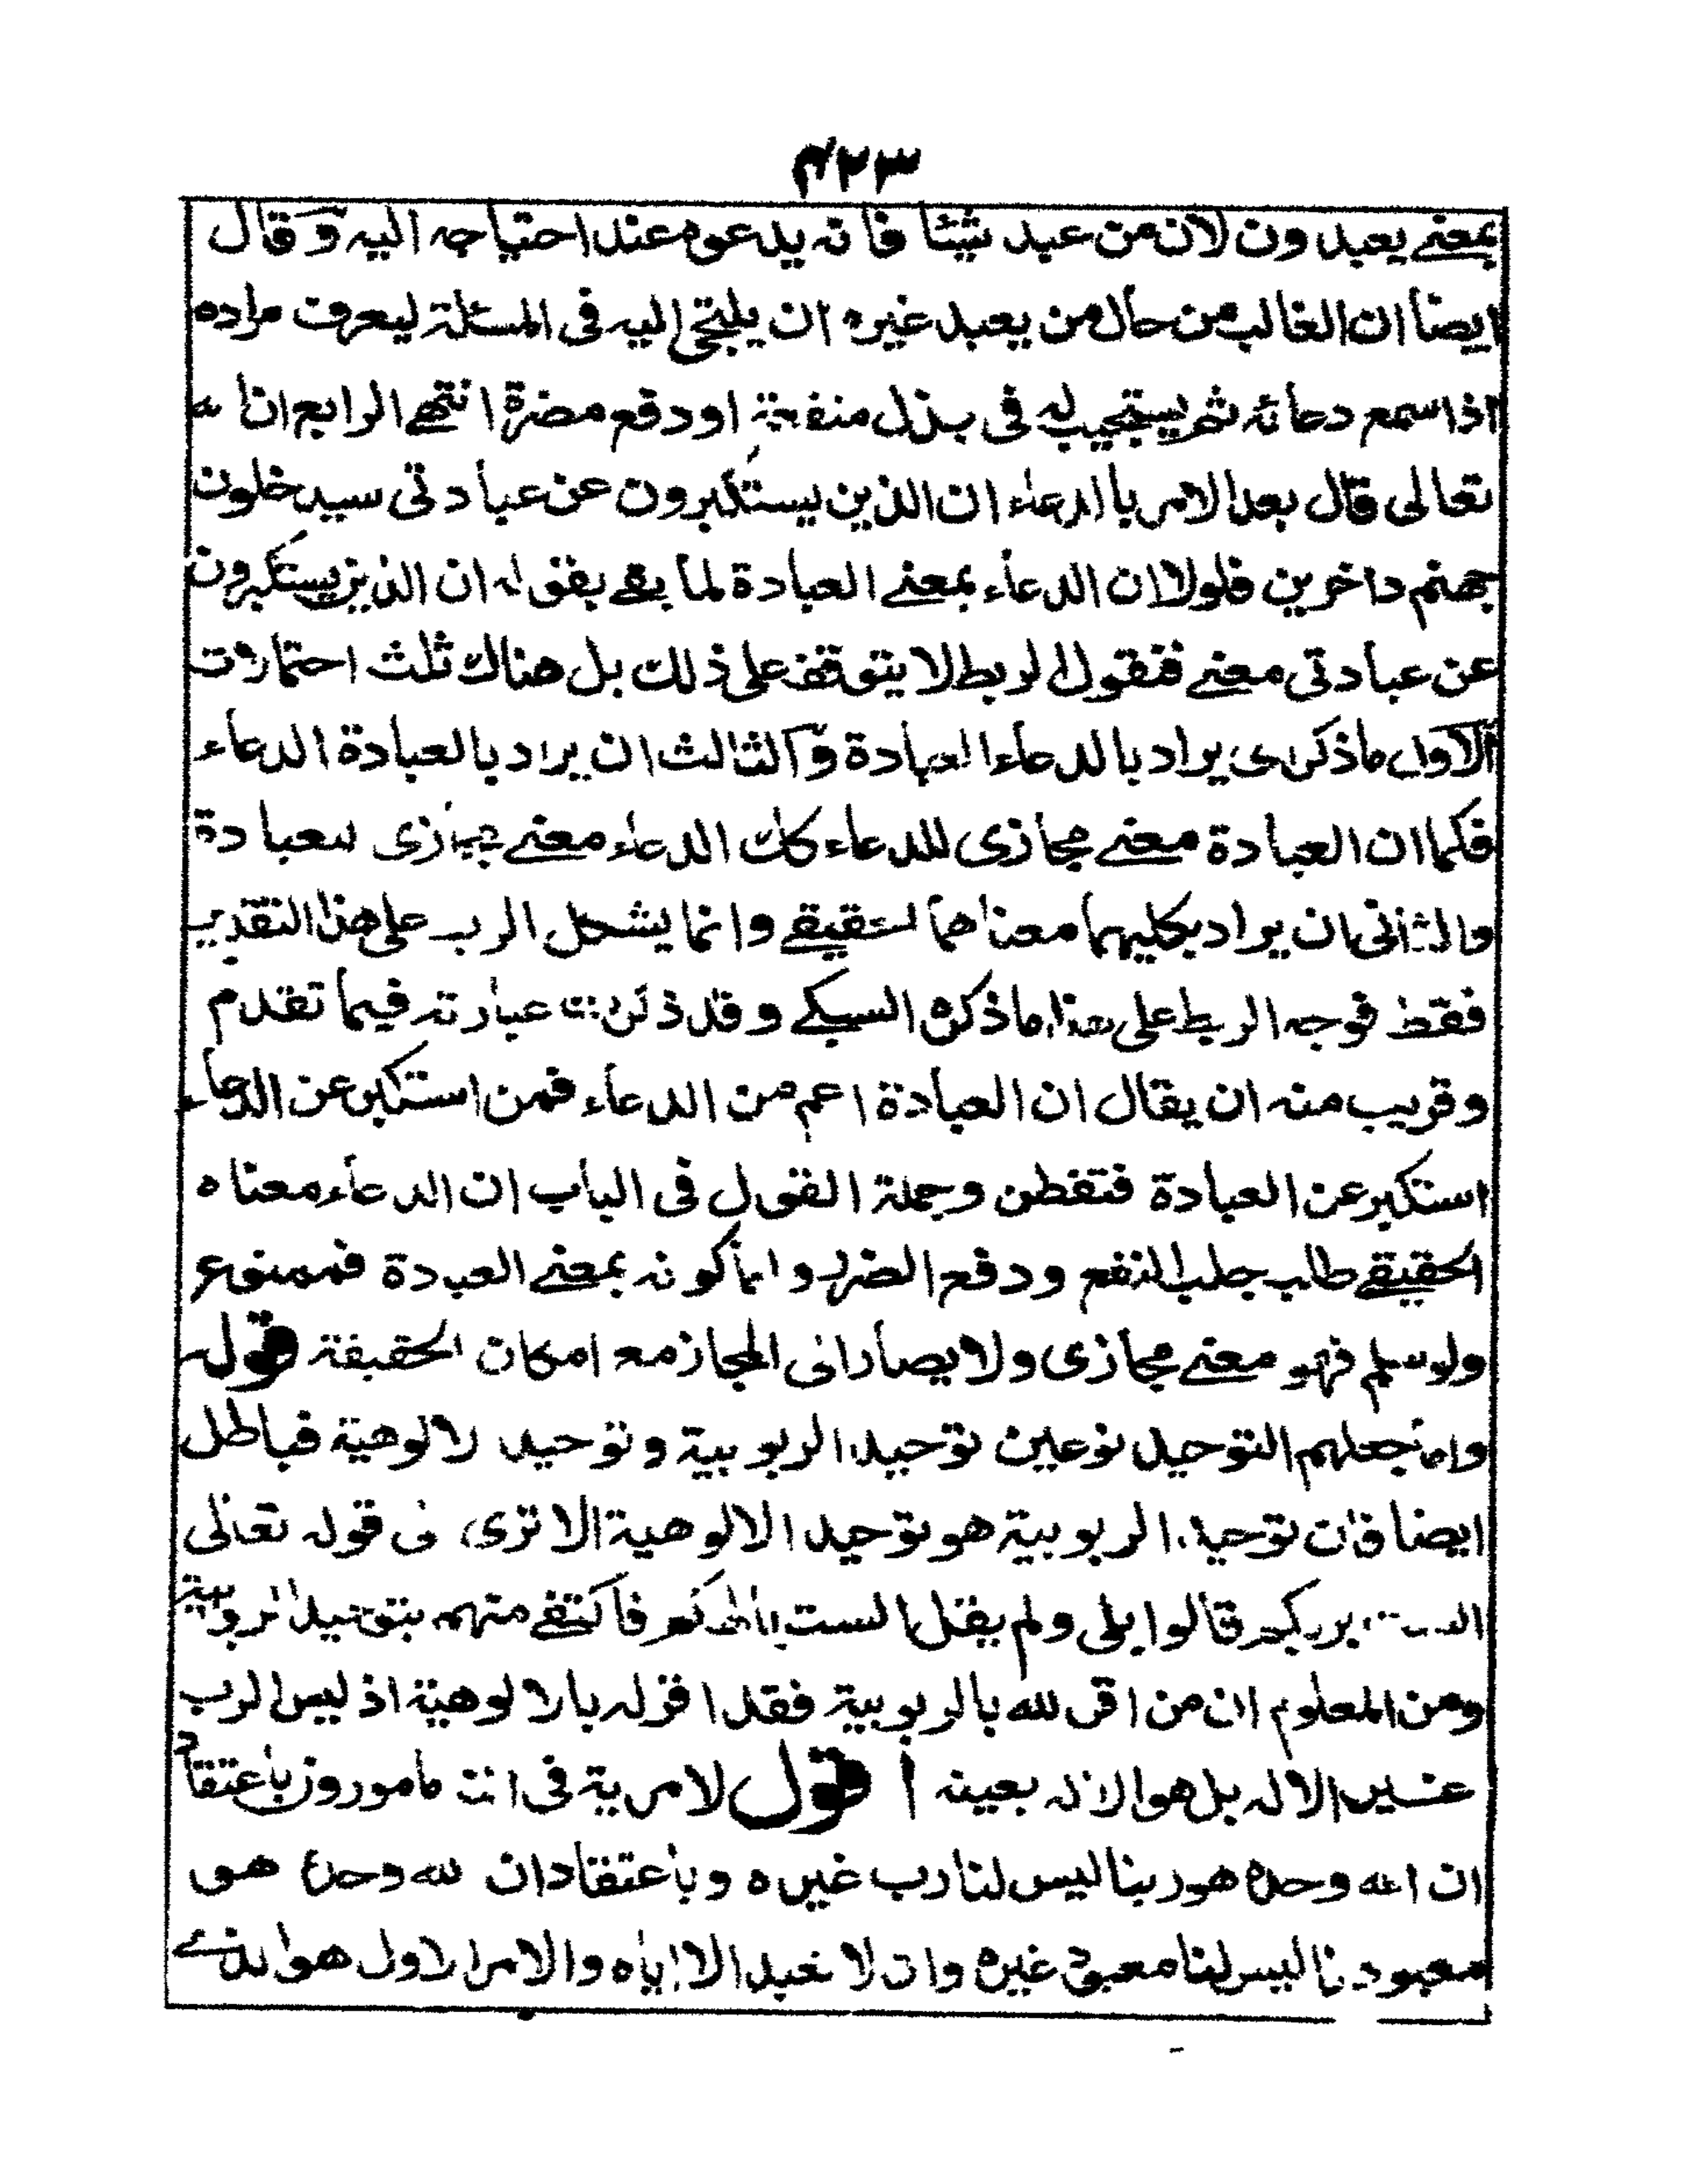 ۴۲۳
بمعنے يعبدون لان من عبد شيئا فانه يدعوه عند احتياجه اليه وقال
ايضا ان الغالب من حال من يعبد غيره ان يلتجئ اليه فى المسئلة ليعرف مراده
اذا سمع دعائه ثم يستجيب له فى بذل منفعة او دفع مضرة انتهے الرابع ان الله
تعالى قال بعد الامر بالدعاء ان الذين يستكبرون عن عبادتى سيدخلون
جهنم داخرين فلولا ان الدعاء بمعنے العبادة لما بقے بقوله ان الذين يستكبرون
عن عبادتى معنے فنقول الربط لا يتوقف على ذلك بل هناك ثلث احتمالات
الاول ما ذكراى يراد بالدعاء العبادة والثالث ان يراد بالعبادة الدعاء
فكما ان العبادة معنے مجازى للدعاء كك الدعاء معنے مجازى للعبادة
والثانى ان يراد بكليهما معناهما الحقيقے وانما يشكل الربط على هذا التقدير
فقط فوجه الربط على هذا ما ذكره السبكے وقد ذكرت عبارته فيما تقدم
وقريب منه ان يقال ان العبادة اعم من الدعاء فمن استكبر عن الدعاء
استكبر عن العبادة فتفطن وجملة القول فى الباب ان الدعاء معناه
الحقيقے طلب جلب النفع ودفع الضرر واما كونه بمعنے العبادة فممنوع
ولو سلم فهو معنے مجازى ولا يصار الى المجاز مع امكان الحقيقة قوله
واما جعلهم التوحيد نوعين توحيد الربوبية وتوحيد الالوهية فباطل
ايضا فان توحيد الربوبية هو توحيد الالوهية الا ترى الى قوله تعالى
الست بربكم قالوا بلى ولم يقل الست بالهكم فاكتفے منهم بتوحيد الربوبية
ومن المعلوم ان من اقر لله بالربوبية فقد اقر له بالالوهية اذ ليس الرب
غير الاله بل هو الاله بعينه اقول لا مرية فى انا مامورون باعتقاد
ان الله وحده هو ربنا ليس لنا رب غيره وباعتقاد ان الله وحده هو
معبودنا ليس لنا معبود غيره وان لا نعبد الا اياه والامر الاول هو الذے